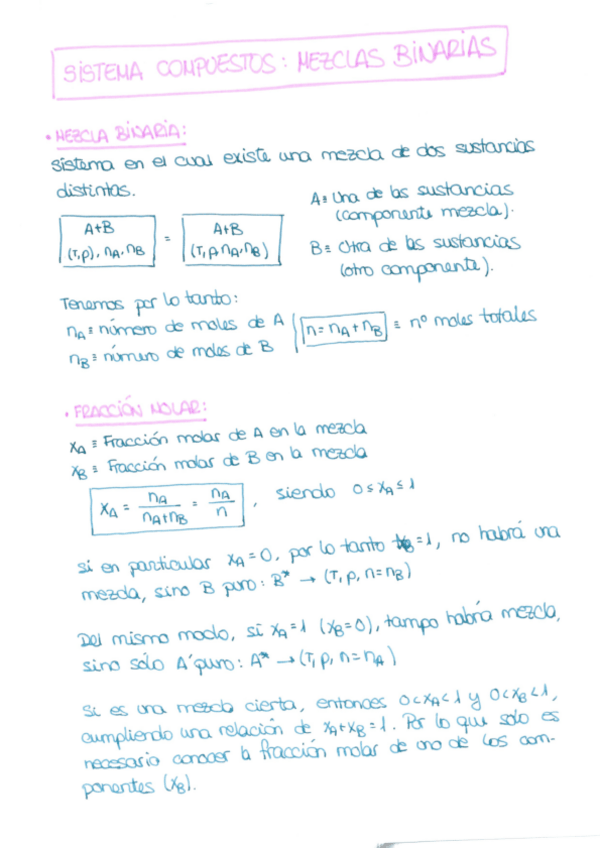 SISTEMA COMPUESTOS: MEZCLAS BINARIAS
• MEZCLA BINARIA:
Sistema en el cual existe una mezcla de dos sustancias
distintas.
A+B
(T,p), nA, nB
=
A+B
(T, p, nA, nB)
A ≡ Una de las sustancias
(componente mezcla).
B ≡ Otra de las sustancias
(otro componente).
Tenemos por lo tanto:
nA ≡ número de moles de A
nB ≡ número de moles de B
n = nA + nB ≡ nº moles totales
• FRACCIÓN MOLAR:
xA ≡ Fracción molar de A en la mezcla
xB ≡ Fracción molar de B en la mezcla
xA = nA / (nA+nB) = nA / n , siendo 0 ≤ xA ≤ 1
si en particular xA = 0, por lo tanto xB = 1, no habrá una
mezcla, sino B puro: B* → (T, p, n = nB)
Del mismo modo, si xA = 1 (xB = 0), tampo habría mezcla,
sino sólo A puro: A* → (T, p, n = nA)
Si es una mezcla cierta, entonces 0 < xA < 1 y 0 < xB < 1,
cumpliendo una relación de xA + xB = 1. Por lo que solo es
necesario conocer la fracción molar de uno de los com-
ponentes (xB).